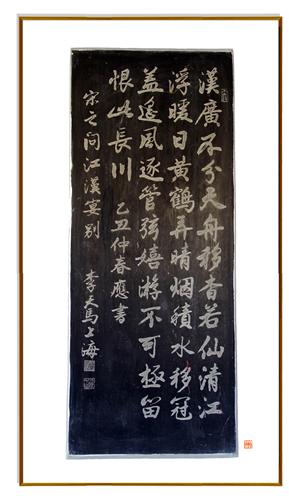 漢廣不分天舟移杳若仙清江
浮暖日黄鶴弄晴烟積水移冠
盖遥風逐管弦嬉游不可極留
恨此長川 乙丑仲春應書
宋之问江漢宴别 李天馬上海